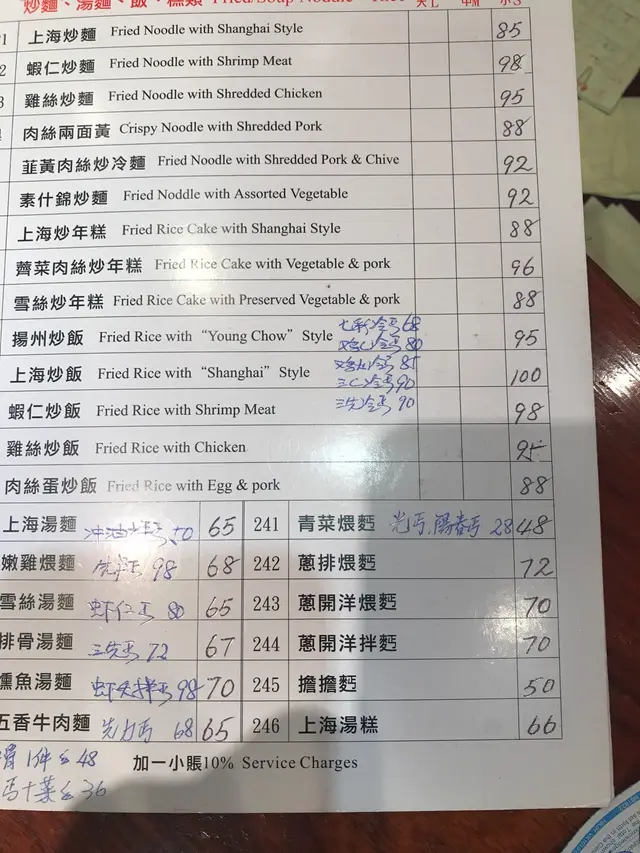 炒麵、湯麵、飯、糕類 Fried/Soup Noodle 大L 中M 小S
1 上海炒麵 Fried Noodle with Shanghai Style 85
2 蝦仁炒麵 Fried Noodle with Shrimp Meat 98
3 雞絲炒麵 Fried Noodle with Shredded Chicken 95
肉絲兩面黃 Crispy Noodle with Shredded Pork 88
韮黃肉絲炒冷麵 Fried Noodle with Shredded Pork & Chive 92
素什錦炒麵 Fried Noddle with Assorted Vegetable 92
上海炒年糕 Fried Rice Cake with Shanghai Style 88
薺菜肉絲炒年糕 Fried Rice Cake with Vegetable & pork 96
雪絲炒年糕 Fried Rice Cake with Preserved Vegetable & pork 88
揚州炒飯 Fried Rice with “Young Chow” Style 95
七彩冷丐 68
80
上海炒飯 Fried Rice with “Shanghai” Style 100
85
90
蝦仁炒飯 Fried Rice with Shrimp Meat 98
90
雞絲炒飯 Fried Rice with Chicken 95
肉絲蛋炒飯 Fried Rice with Egg & pork 88
上海湯麵 50 65 241 青菜煨麪 28 48
嫩雞煨麵 98 68 242 蔥排煨麪 72
雪絲湯麵 虾仁丐 80 65 243 蔥開洋煨麪 70
排骨湯麵 72 67 244 蔥開洋拌麪 70
燻魚湯麵 98 70 245 擔擔麪 50
五香牛肉麵 68 65 246 上海湯糕 66
48
加一小賬10% Service Charges
36